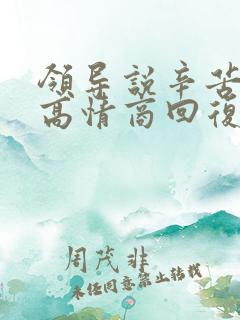 領导説辛苦
高情商回復
周茂非
未经同意禁止转载